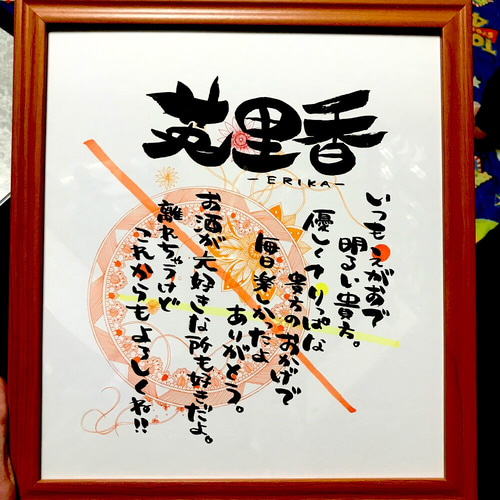 英里香
-ERIKA-
いつもえがおで
明るい貴方。
優しくてりっぱな
貴方のおかげで
毎日楽しかったよ
ありがとう。
お酒が大好きな所も好きだよ。
離れちゃうけど
これからもよろしくね!!